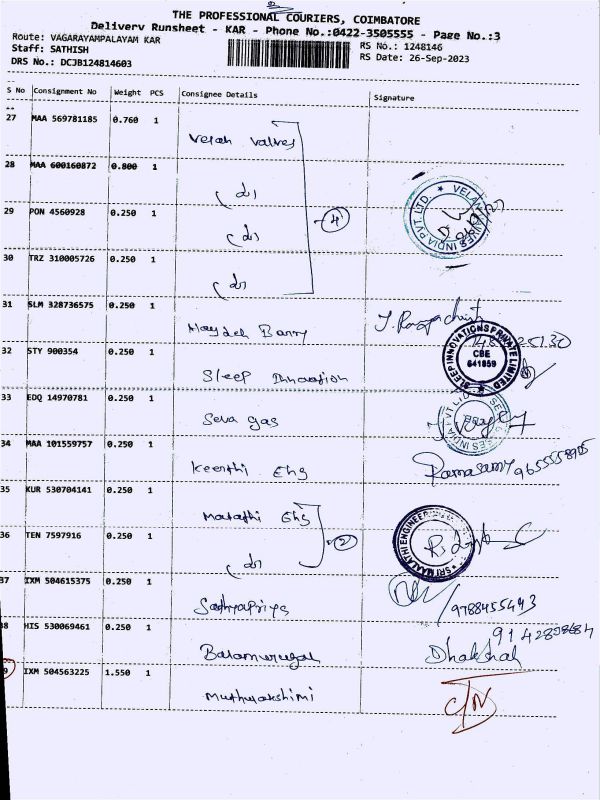 THE PROFESSIONAL COURIERS, COIMBATORE
Delivery Runsheet - KAR - Phone No.:0422-3505555 - Page No.:3
Route: VAGARAYAMPALAYAM KAR
RS No.: 1248146
Staff: SATHISH
RS Date: 26-Sep-2023
DRS No.: DCJB124814603
S No Consignment No Weight PCS Consignee Details Signature
27 MAA 569781185 0.760 1
Velan Valves
28 MAA 600160872 0.800 1
(do)
29 PON 4560928 0.250 1
(do)
4
30 TRZ 310005726 0.250 1
(do)
31 SLM 328736575 0.250 1
32 STY 900354 0.250 1
Sleep Innovation
SLEEP INNOVATIONS PRIVATE LIMITED
CBE
641659
33 EDQ 14970781 0.250 1
Seva gas
34 MAA 101559757 0.250 1
Keerthi Eng
Ramasamy 9655558905
35 KUR 530704141 0.250 1
Malathi Eng
2
SRI MAALATHI ENGINEERING
36 TEN 7597916 0.250 1
(do)
37 IXM 504615375 0.250 1
Sathyapriya
9788455443
38 HIS 530069461 0.250 1
Balamurugan
Dhakshal
9 IXM 504563225 1.550 1
Muthulakshimi